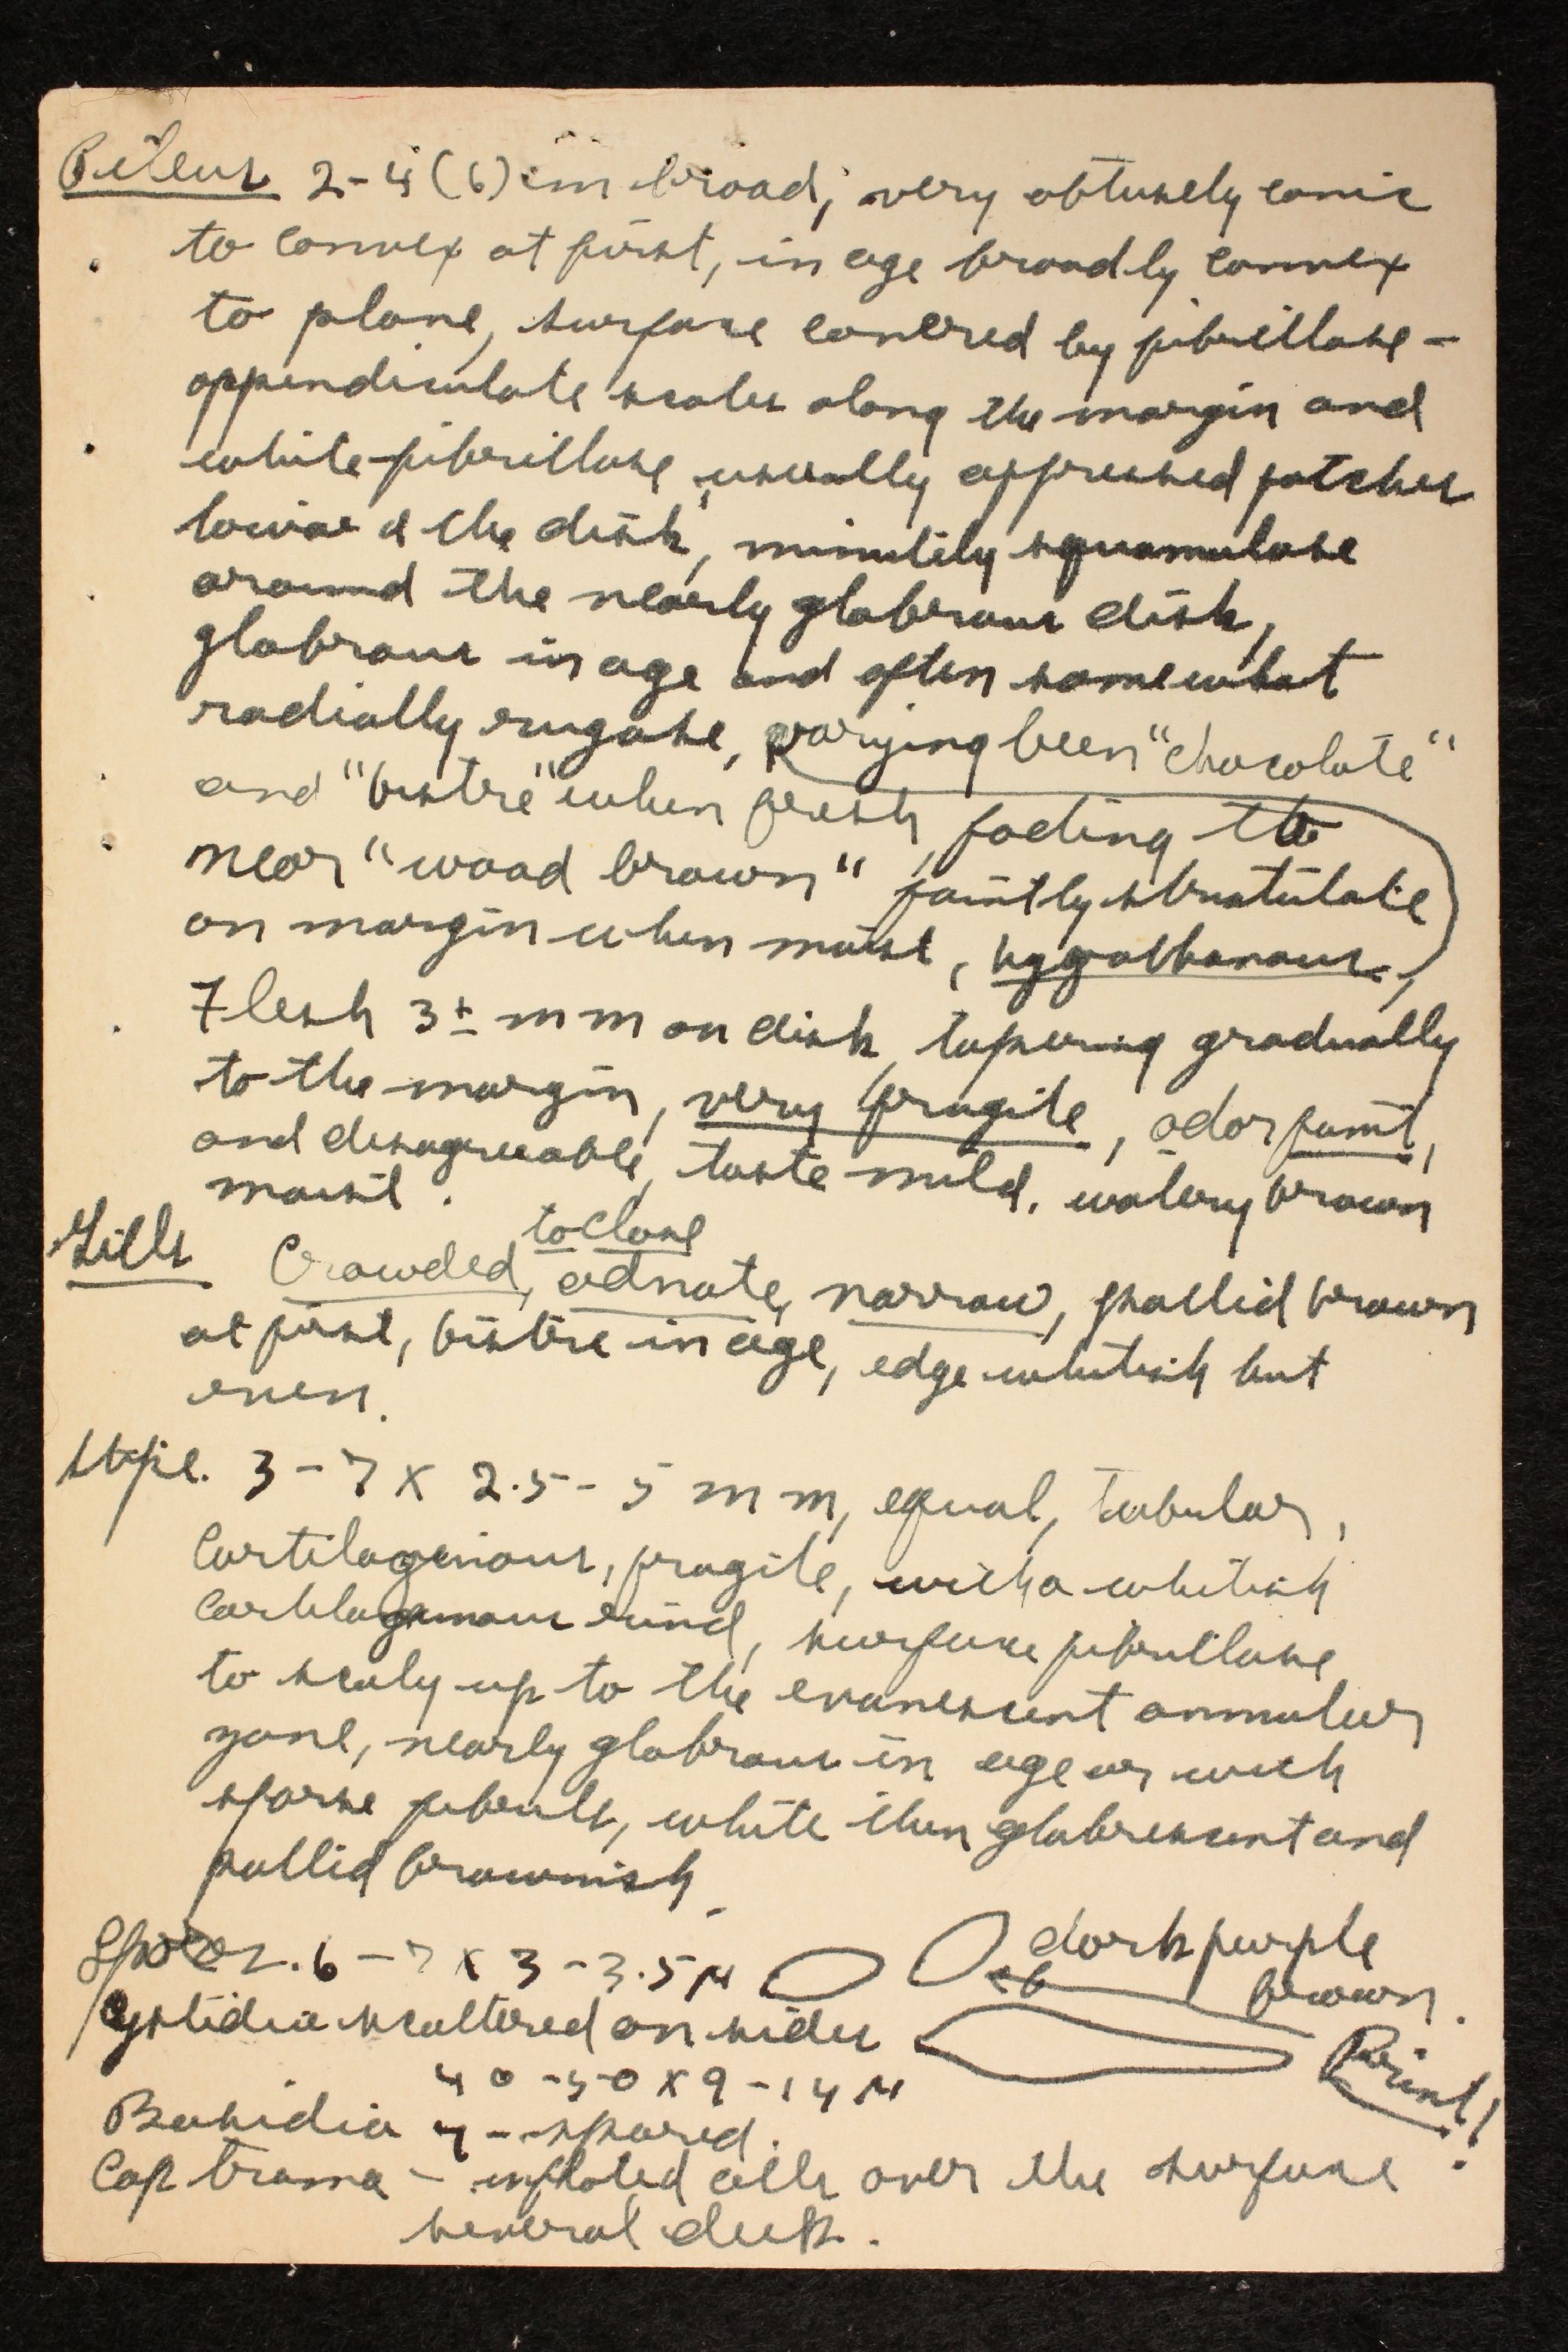 Pileus 2-4(6)cm broad, very obtusely conic
to convex at first, in age broadly convex
to plane, surface covered by fibrillose-
appendiculate scales along the margin and
white-fibrillose, usually appressed patches
toward the disk, minutely squamulose
around the nearly glabrous disk,
glabrous in age and often somewhat
radially rugose, varying been "chocolate"
and "bistre" when fresh, fading to
near "wood brown" faintly striatulate
on margin when moist, hygrophanous,
Flesh 3± mm on disk, tapering gradually
to the margin, very fragile, odor faint,
and disagreeable, taste mild, watery brown
moist.
to close
Gills Crowded, adnate, narrow, pallid brown
at first, bistre in age, edge whitish but
even.
Stipe. 3-7 x 2.5-5 mm, equal, tubular,
Cartilaginous, fragile, with a whitish
cartilaginous rind, surface fibrillose
to scaly up to the evanescent annular
zone, nearly glabrous in age or with
sparse fibrils, white then glabrescent and
pallid brownish.
Spores. 6-7 x 3-3.5 µ dark purple
brown.
Cystidia scattered on sides Print!
40-50 x 9-14 µ
Basidia 4-spored.
Cap trama - inflated cells over the surface
several deep.